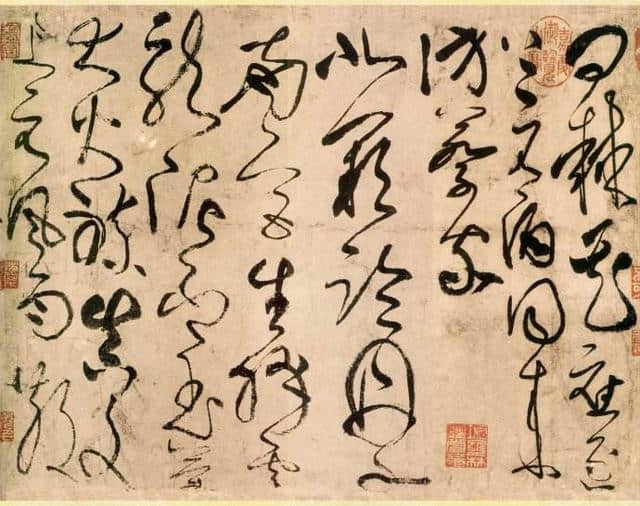 問棘花應逐
上元酒同來
訪蔡家
北闕臨丹水
南宮生絳雲
龍泥印玉簡
大火煉真文
上元風雨散